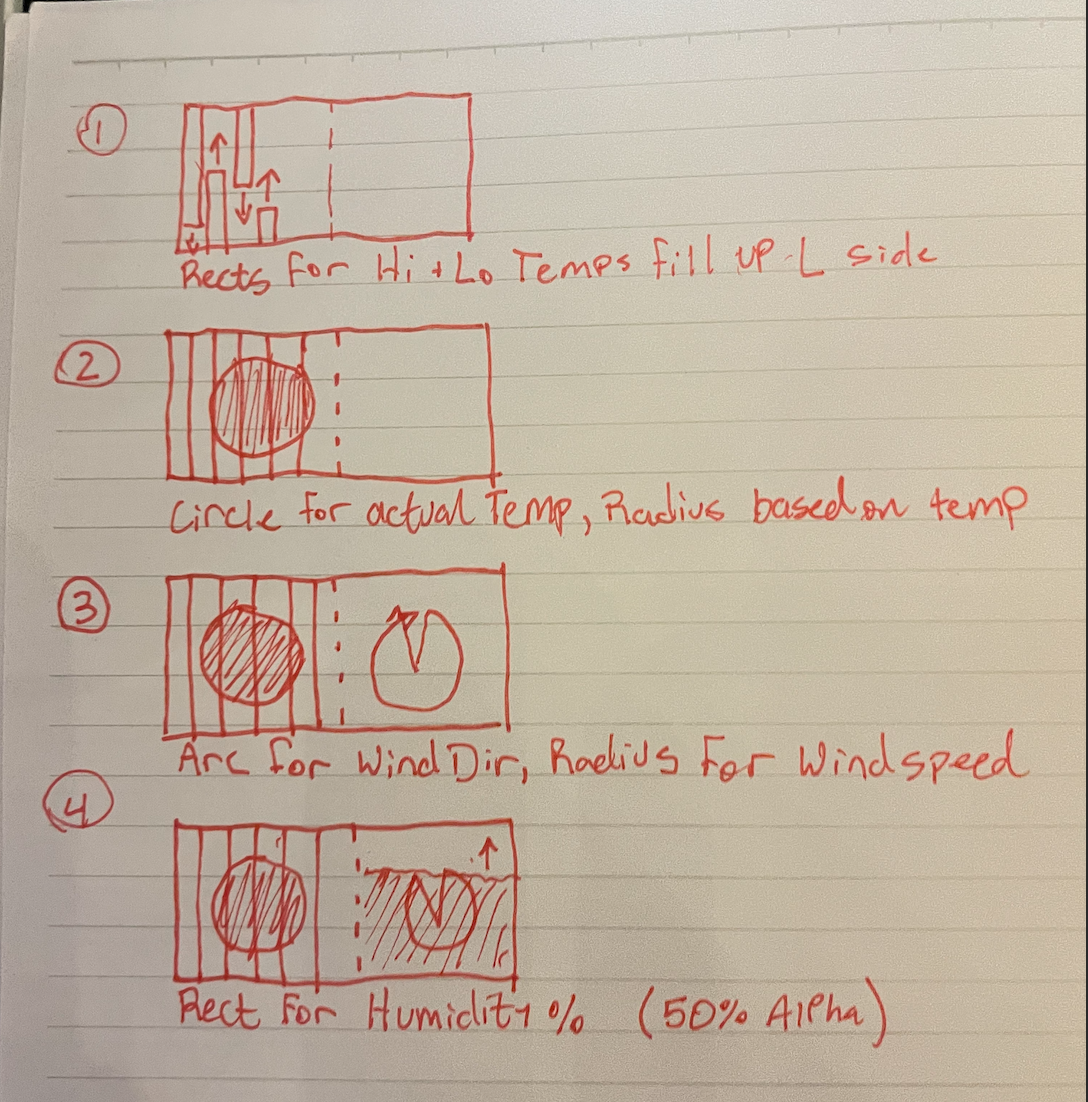 1
Rects for Hi + Lo Temps fill up L side
2
Circle for actual Temp, Radius based on temp
3
Arc for Wind Dir, Radius For Windspeed
4
Rect For Humidity % (50% Alpha)